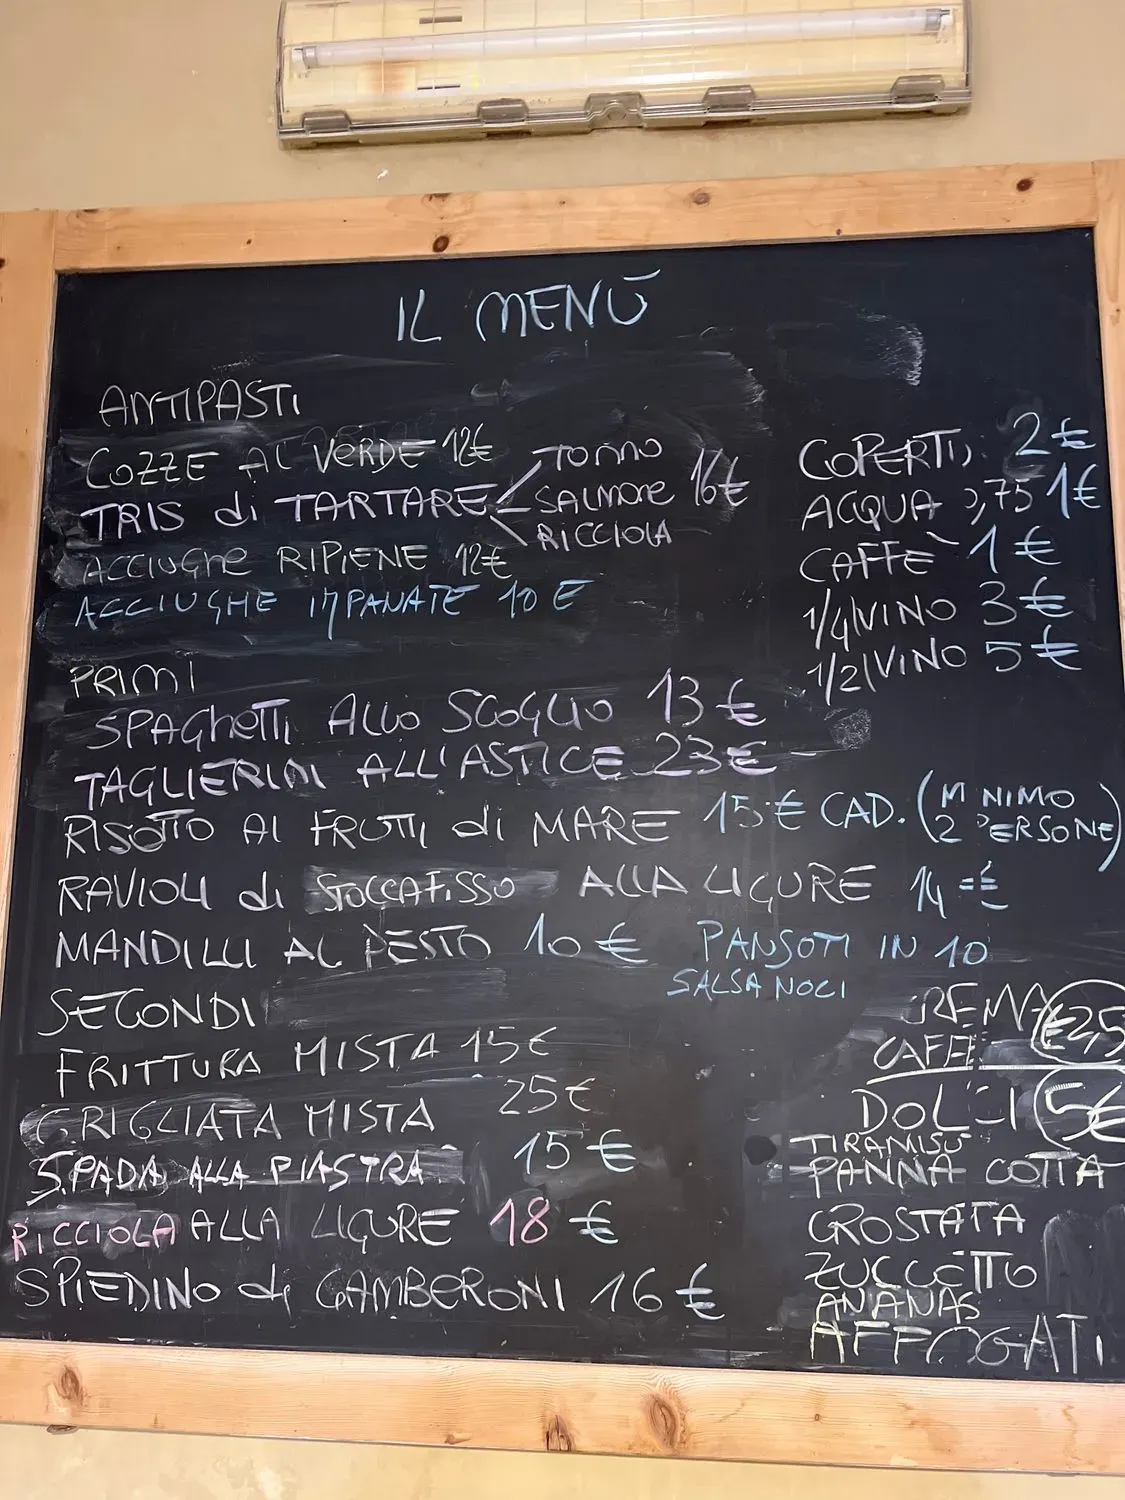 IL MENÙ
ANTIPASTI
COZZE AL VERDE 12€
TRIS di TARTARE TONNO
SALMONE 16€
RICCIOLA
ACCIUGHE RIPIENE 12€
ACCIUGHE IMPANATE 10 €
PRIMI
SPAGHETTI ALLO SCOGLIO 13 €
TAGLIERINI ALL'ASTICE 23€
RISOTTO AI FRUTTI di MARE 15 € CAD. (MINIMO
2 PERSONE)
RAVIOLI di STOCCAFISSO ALLA LIGURE 14 €
MANDILLI AL PESTO 10 €
PANSOTI IN 10
SALSA NOCI
SECONDI
FRITTURA MISTA 15€
GRIGLIATA MISTA 25€
SPADA ALLA PIASTRA 15 €
RICCIOLA ALLA LIGURE 18 €
SPIEDINO di GAMBERONI 16 €
COPERTI 2€
ACQUA 0,75 1€
CAFFÈ 1 €
1/4 VINO 3€
1/2 VINO 5€
CREMA
CAFFÈ €2,5
DOLCI 5€
TIRAMISÙ
PANNA COTTA
CROSTATA
ZUCCOTTO
ANANAS
AFFOGATI